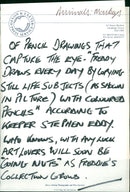 Animals Monkeys
OF PENCIL DRAWINGS THAT
CAPTURE THE EYE. FREDDY
DRAWS EVERY DAY BY COPYING
STILL LIFE SUBJECTS (AS SHOWN
IN PICTURE) WITH COLOURED
PENCILS" ACCORDING TO
KEEPER STEPHEN EDDY.
WHO KNOWS, WITH ANY LUCK
ART LOVERS WILL SOON BE
'GOING NUTS' AS FREDDIE'S
COLLECTION GROWS.